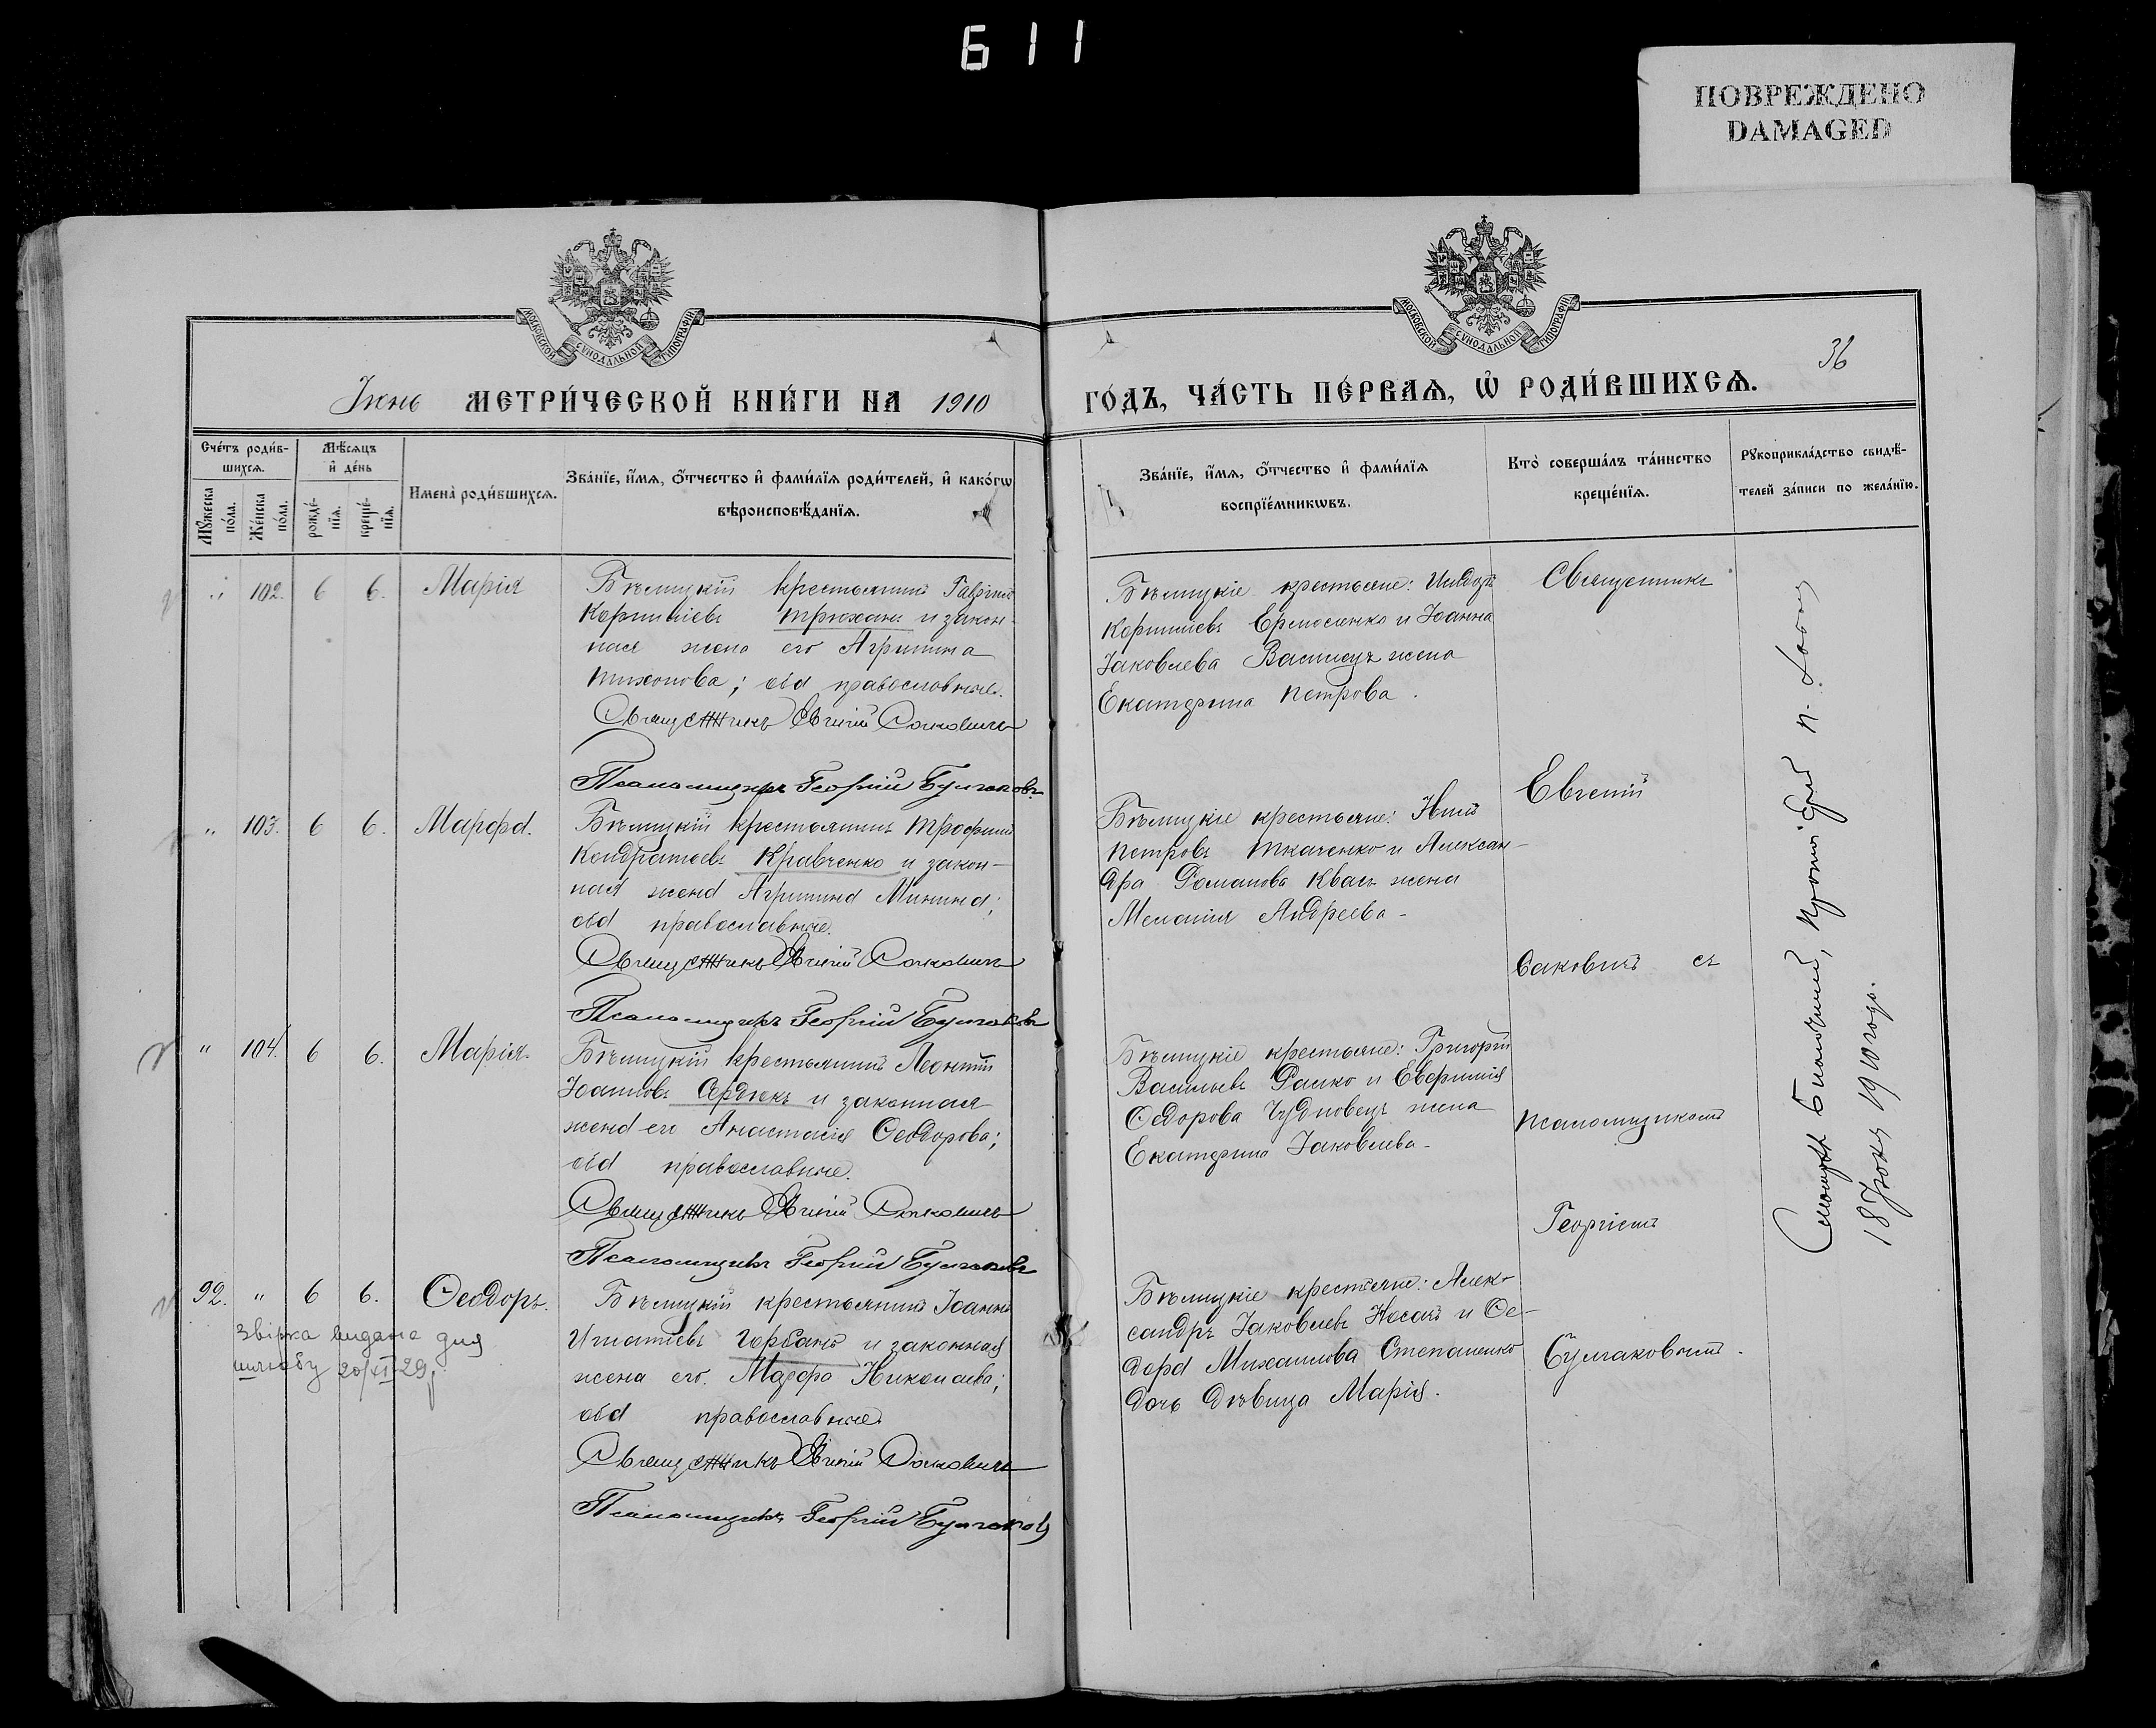 611
ПОВРЕЖДЕНО
DAMAGED
МОСКОВСКОЙ СѴНОДАЛЬНОЙ ТИПОГРАФІИ
МОСКОВСКОЙ СѴНОДАЛЬНОЙ ТИПОГРАФІИ
36
Іюнь МЕТРИ́ЧЕСКОЙ КНИ́ГИ НА 1910
ГО́ДЪ, ЧА́СТЬ ПЕ́РВАѦ, Ѽ РОДИ́ВШИХСѦ.
Сче́тъ роди́в-
шихсѧ.
Мꙋ́жеска
по́ла.
Же́нска
по́ла.
Мѣ́сѧцъ
и҆ де́нь
рожде́-
нїѧ.
креще́-
нїѧ.
Имена̀ роди́вшихсѧ.
Зва́нїе, и҆́мѧ, ѻ҆́тчество и҆ фами́лїѧ роди́телей, и҆ како́гѡ
вѣроисповѣ́данїѧ.
Зва́нїе, и҆́мѧ, ѻ҆́тчество и҆ фами́лїѧ
воспрїе́мникѡвъ.
Кто̀ соверша́лъ та́инство
креще́нїѧ.
Рꙋкоприкла́дство свидѣ́-
телей за́писи по жела́нїю.
" 102. 6 6. Марія
Бѣлицкій крестьянинъ Гавріилъ
Корниліевъ Трюханъ и закон-
ная жена его Агрипина
Тихонова; оба православные.
Священникъ Евгеній Саковичъ
Псаломщикъ Георгій Булгаковъ
Бѣлицкіе крестьяне:
Корниліевъ Ермоленко и Іоанна
Іаковлева жена
Екатерина Петрова.
Священникъ
" 103. 6 6. Марфа.
Бѣлицкій крестьянинъ Трофимъ
Кондратьевъ Кравченко и закон-
ная жена Агрипина Минина;
оба православные.
Священникъ Евгеній Саковичъ
Псаломщикъ Георгій Булгаковъ
Бѣлицкіе крестьяне:
Петровъ Ткаченко и Алексан-
дра Романова Квашъ жена
Меланія Андреева-
Евгеній
Саковичъ съ
" 104. 6 6. Марія.
Бѣлицкій крестьянинъ Леонтій
Іоанновъ Сердюкъ и законная
жена его Анастасія Ѳеодорова;
оба православные.
Священникъ Евгеній Саковичъ
Псаломщикъ Георгій Булгаковъ
Бѣлицкіе крестьяне: Григорій
Васильевъ и Евфимія
Ѳедорова Чудновецъ жена
Екатерина Іаковлева-
псаломщикомъ
Георгіемъ
92. " 6 6. Ѳеодоръ.
Звірка видана для
шлюбу 20/XI 29 р
Бѣлицкій крестьянинъ Іоаннъ
Игнатіевъ Горбань и законная
жена его Марфа Николаева;
оба православные.
Священникъ Евгеній Саковичъ
Псаломщикъ Георгій Булгаковъ
Бѣлицкіе крестьяне: Алек-
сандръ Іаковлевъ Носачъ и Ѳе-
дора Михаилова Степаненко
дочь дѣвица Марія.
Булгаковымъ.
Смотрѣлъ Благочинный, Протоіерей П.
18 Іюня 1910 года.